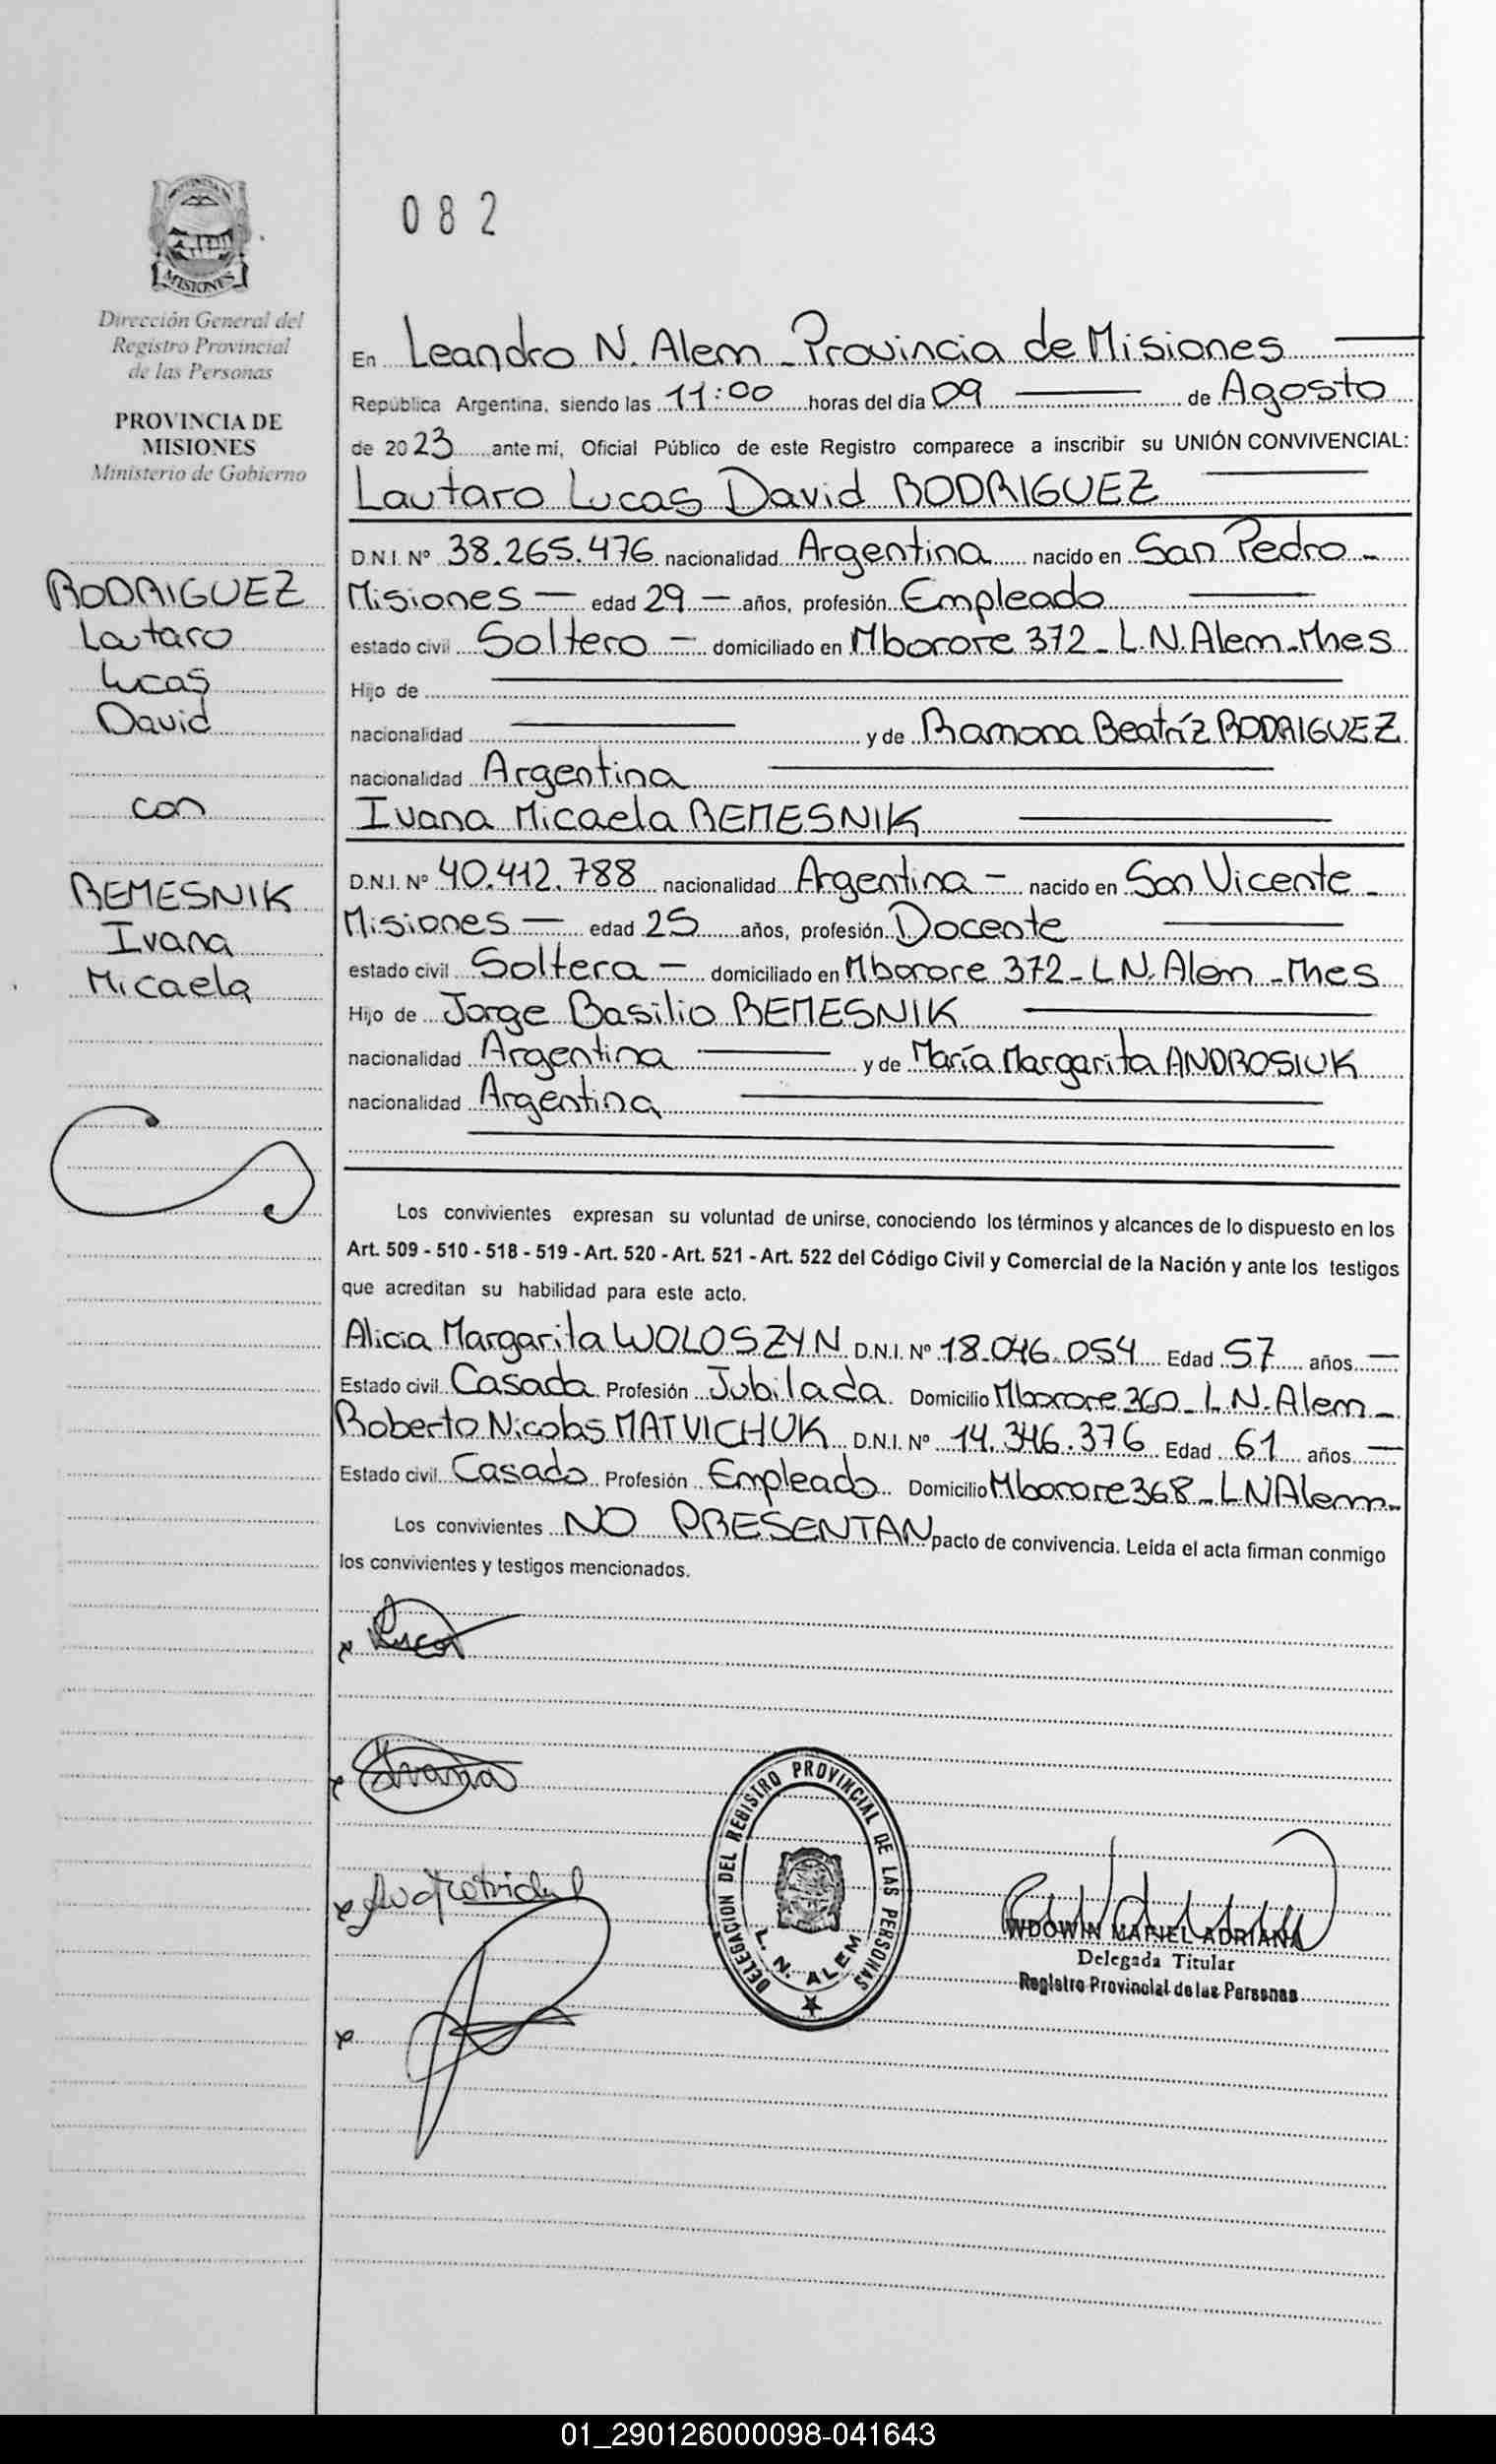 MISIONES
Dirección General del
Registro Provincial
de las Personas
PROVINCIA DE
MISIONES
Ministerio de Gobierno
RODRIGUEZ
Lautaro
Lucas
David
con
REMESNIK
Ivana
Micaela
082
En Leandro N. Alem - Provincia de Misiones
República Argentina, siendo las 11:00 horas del día 09 de Agosto
de 2023 ante mí, Oficial Público de este Registro comparece a inscribir su UNIÓN CONVIVENCIAL:
Lautaro Lucas David RODRIGUEZ
D.N.I. Nº 38.265.476 nacionalidad Argentina nacido en San Pedro -
Misiones — edad 29 — años, profesión Empleado
estado civil Soltero — domiciliado en Mborore 372 - L.N. Alem - Mnes
Hijo de
nacionalidad y de Ramona Beatríz RODRIGUEZ
nacionalidad Argentina
Ivana Micaela REMESNIK
D.N.I. Nº 40.412.788 nacionalidad Argentina — nacido en San Vicente -
Misiones — edad 25 años, profesión Docente
estado civil Soltera — domiciliado en Mborore 372 - L N. Alem - Mnes
Hijo de Jorge Basilio REMESNIK
nacionalidad Argentina y de María Margarita ANDROSIUK
nacionalidad Argentina
Los convivientes expresan su voluntad de unirse, conociendo los términos y alcances de lo dispuesto en los
Art. 509 - 510 - 518 - 519 - Art. 520 - Art. 521 - Art. 522 del Código Civil y Comercial de la Nación y ante los testigos
que acreditan su habilidad para este acto.
Alicia Margarita WOLOSZYN D.N.I. Nº 18.046.054 Edad 57 años —
Estado civil Casada Profesión Jubilada Domicilio Mborore 360 - L N. Alem -
Roberto Nicolas MATVICHUK D.N.I. Nº 14.346.376 Edad 61 años —
Estado civil Casado Profesión Empleado Domicilio Mborore 368 - L N Alem -
Los convivientes NO PRESENTAN pacto de convivencia. Leída el acta firman conmigo
los convivientes y testigos mencionados.
Lucas
Ivana
DELEGACION DEL REGISTRO PROVINCIAL DE LAS PERSONAS
L. N. ALEM
WDOWIN MARIEL ADRIANA
Delegada Titular
Registro Provincial de las Personas
01_290126000098-041643